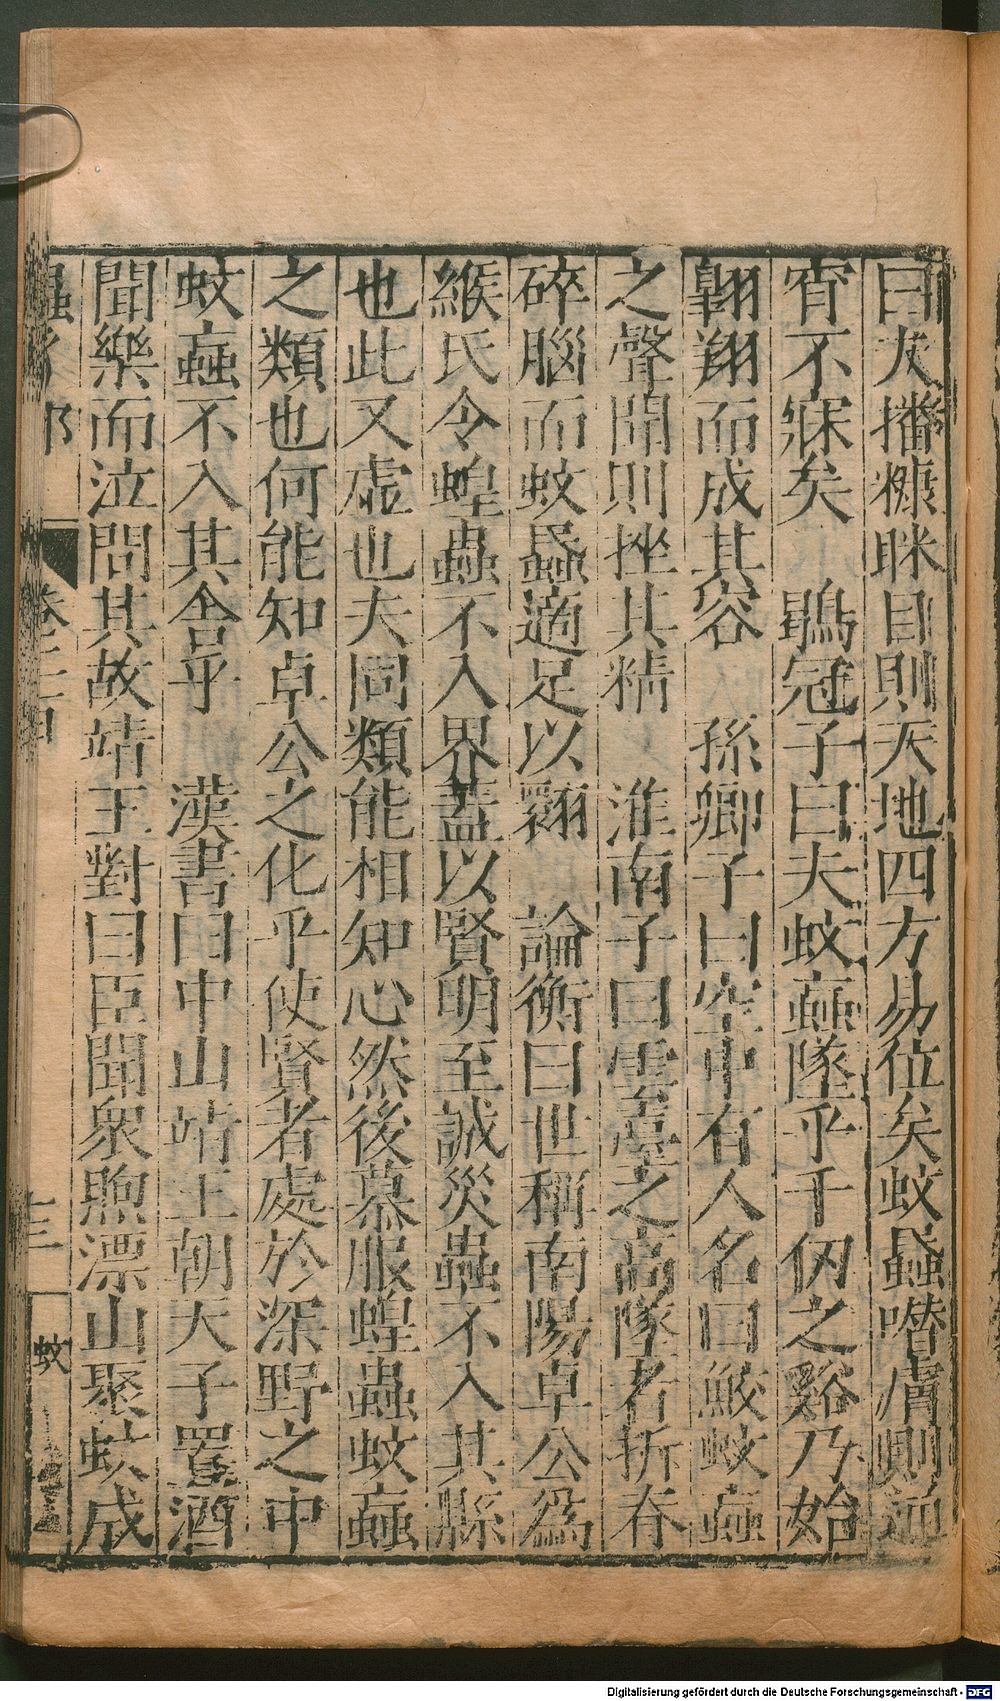 曰夫播糠眯目則天地四方易位矣蚊䖟噆膚則通
宵不寐矣　鶡冠子曰夫蚊䖟墜乎千仞之谿乃始
翺翔而成其容　孫卿子曰空中有人名曰鮫蚊䖟
之聲聞則挫其精　淮南子曰雲臺之高墜者折脊
碎腦而蚊䖟適足以翱　論衡曰世稱南陽卓公爲
緱氏令蝗蟲不入界蓋以賢明至誠災蟲不入其縣
也此又虛也夫同類能相知心然後慕服蝗蟲蚊䖟
之類也何能知卓公之化乎使賢者處於深野之中
蚊䖟不入其舍乎　漢書曰中山靖王朝天子置酒
聞樂而泣問其故靖王對曰臣聞衆喣漂山聚蚊成
蟲豸部　卷三十四　十三　蚊
Digitalisierung gefördert durch die Deutsche Forschungsgemeinschaft - DFG